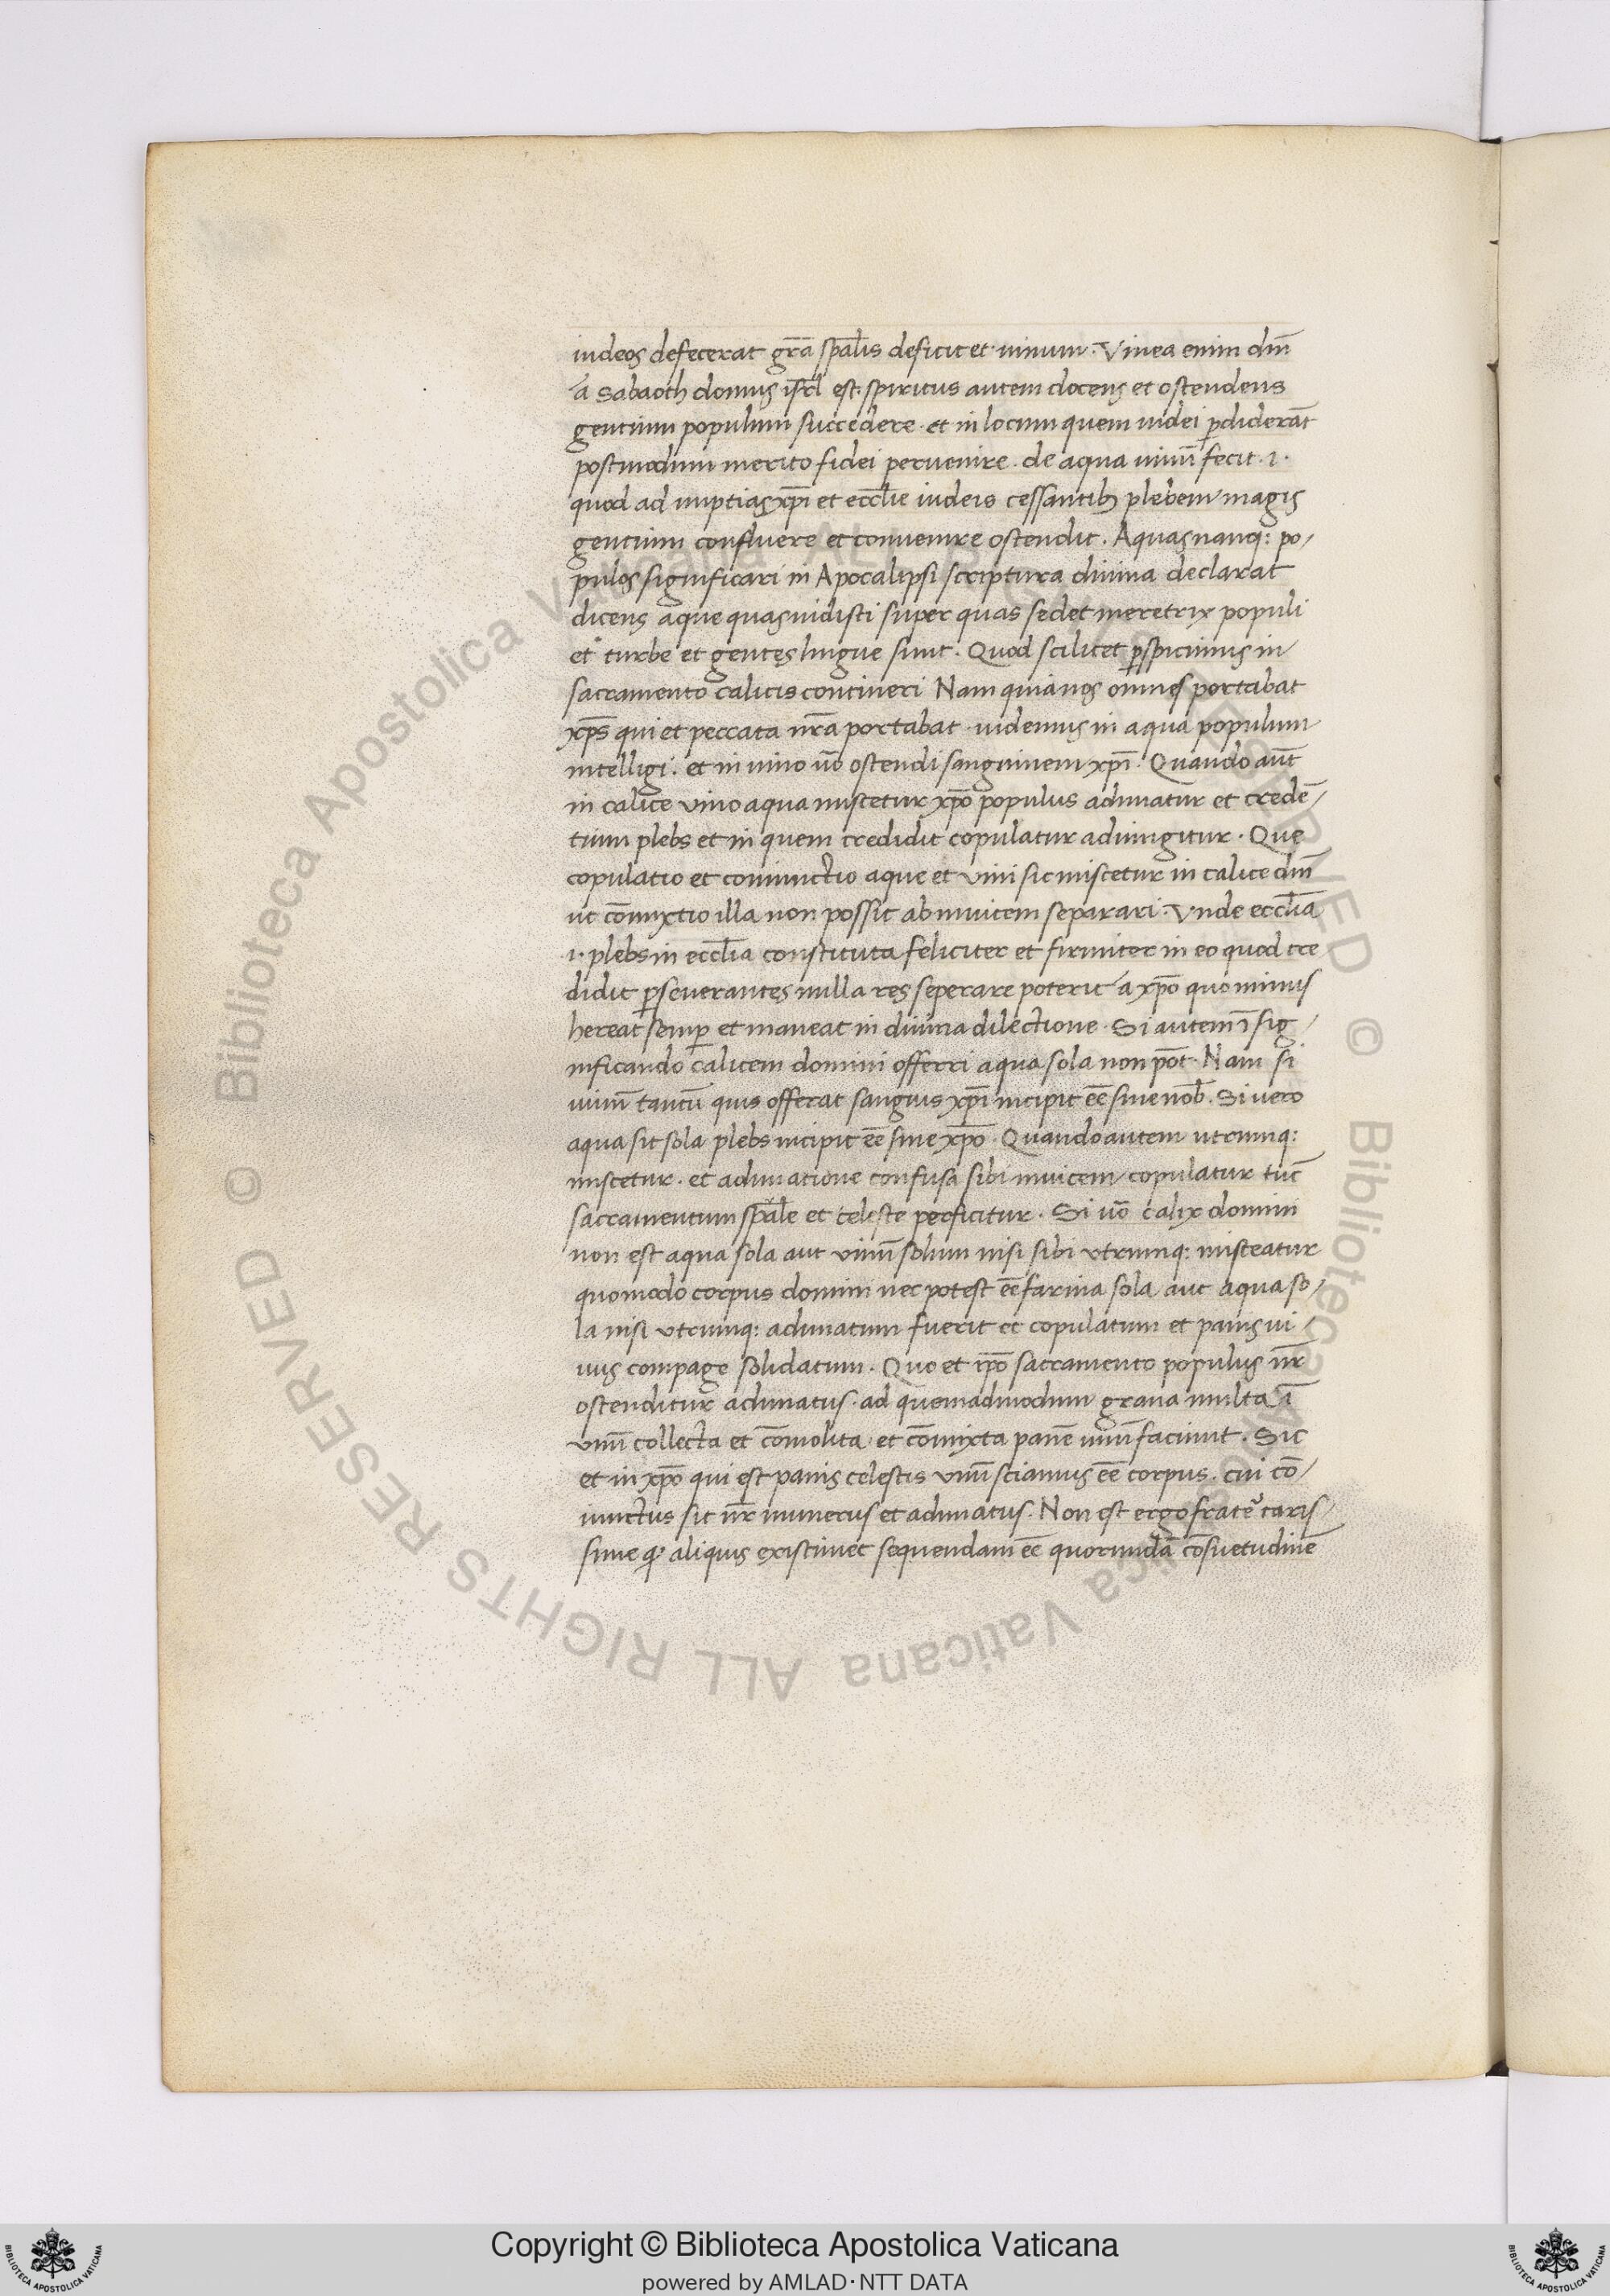 iudeos defecerat gr̄a sp̄al̄is deficit et uinum. Vinea enim dm̄
ā Sabaoth domus isr̄l est. spiritus autem docens et ostendens
gentium populum succedere. et in locum quem iudei ꝑdiderāt
postmodum merito fidei peruenire. de aqua uinū fecit .i.
quod ad nuptias xp̄i et eccl̄ie iudeis cessantibꝫ plebem magis
gentium confluere et conuenire ostendit. Aquas nanq: po/
pulos significari in Apocalipsi scriptura diuina declarat
dicens aque quas uidisti super quas sedet meretrix populi
et turbe et gentes lingue sunt. Quod scilicet ꝑspicimus in
sacramento calicis contineri Nam quia nos omnes portabat
xp̄s qui et peccata nr̄a portabat. uidemus in aqua populum
intelligi. et in uino ūo ostendi sanguinem xp̄i. Quando aūt
in calice vino aqua miscetur xp̄o populus adunatur et credē/
tium plebs et in quem credidit copulatur adiungitur. Que
copulatio et coniunctio aque et vini sic miscetur in calice dm̄
ut cōmixtio illa non possit ab inuicem separari. Vnde eccl̄ia
.i. plebs in eccl̄ia constituta feliciter et firmiter in eo quod cre
didit ꝑseuerantes nulla res seperare poterit a xp̄o quo minus
hereat semꝑ et maneat in diuina dilectione. Si autem ī sig/
nificando calicem domini offerri aqua sola non pōt. Nam si
uinū tantū quis offerat sanguis xp̄i incipit eē sine nob̄. Si uero
aqua sit sola plebs incipit eē sine xp̄o. Quando autem utrumq:
miscetur. et adunatione confusa sibi inuicem copulatur tūc
sacramentum sp̄al̄e et celeste perficitur. Si ūo calix domini
non est aqua sola aut vinū solum nisi sibi vtrumq: misceatur
quomodo corpus domini nec potest eē farina sola aut aqua so/
la nisi vtrumq: adunatum fuerit et copulatum et panis ui/
uus compage solidatum. Quo et ip̄o sacramento populus nr̄
ostenditur adunatus. ad quemadmodum grana multa ī
vnū collecta et cōmolita et cōmixta panē unū faciunt. Sic
et in xp̄o qui est panis celestis vnū sciamus eē corpus. cui cō/
iunctus sit nr̄ numerus et adunatus. Non est ergo frater caris/
sime qꝫ aliquis existimet sequendam eē quorundā cōsuetudinē
Copyright © Biblioteca Apostolica Vaticana
powered by AMLAD·NTT DATA
© Biblioteca Apostolica Vaticana ALL RIGHTS RESERVED © Biblioteca Apostolica Vaticana ALL RIGHTS RESERVED
BIBLIOTECA APOSTOLICA VATICANA
BIBLIOTECA APOSTOLICA VATICANA